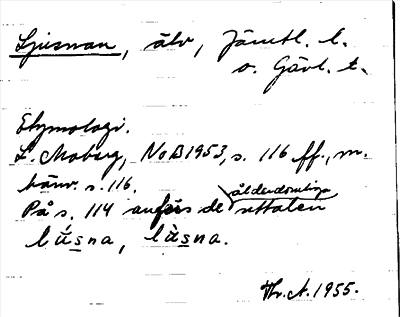 Ljusnan, älv, Jämtl. l.
o. Gävl. l.
Etymologi.
L. Moberg, NoB 1953, s. 116 ff., m.
hänv. s. 116.
På s. 114 anförs de ålderdomliga uttalen
lúsna, lùsna.
Th. A. 1955.